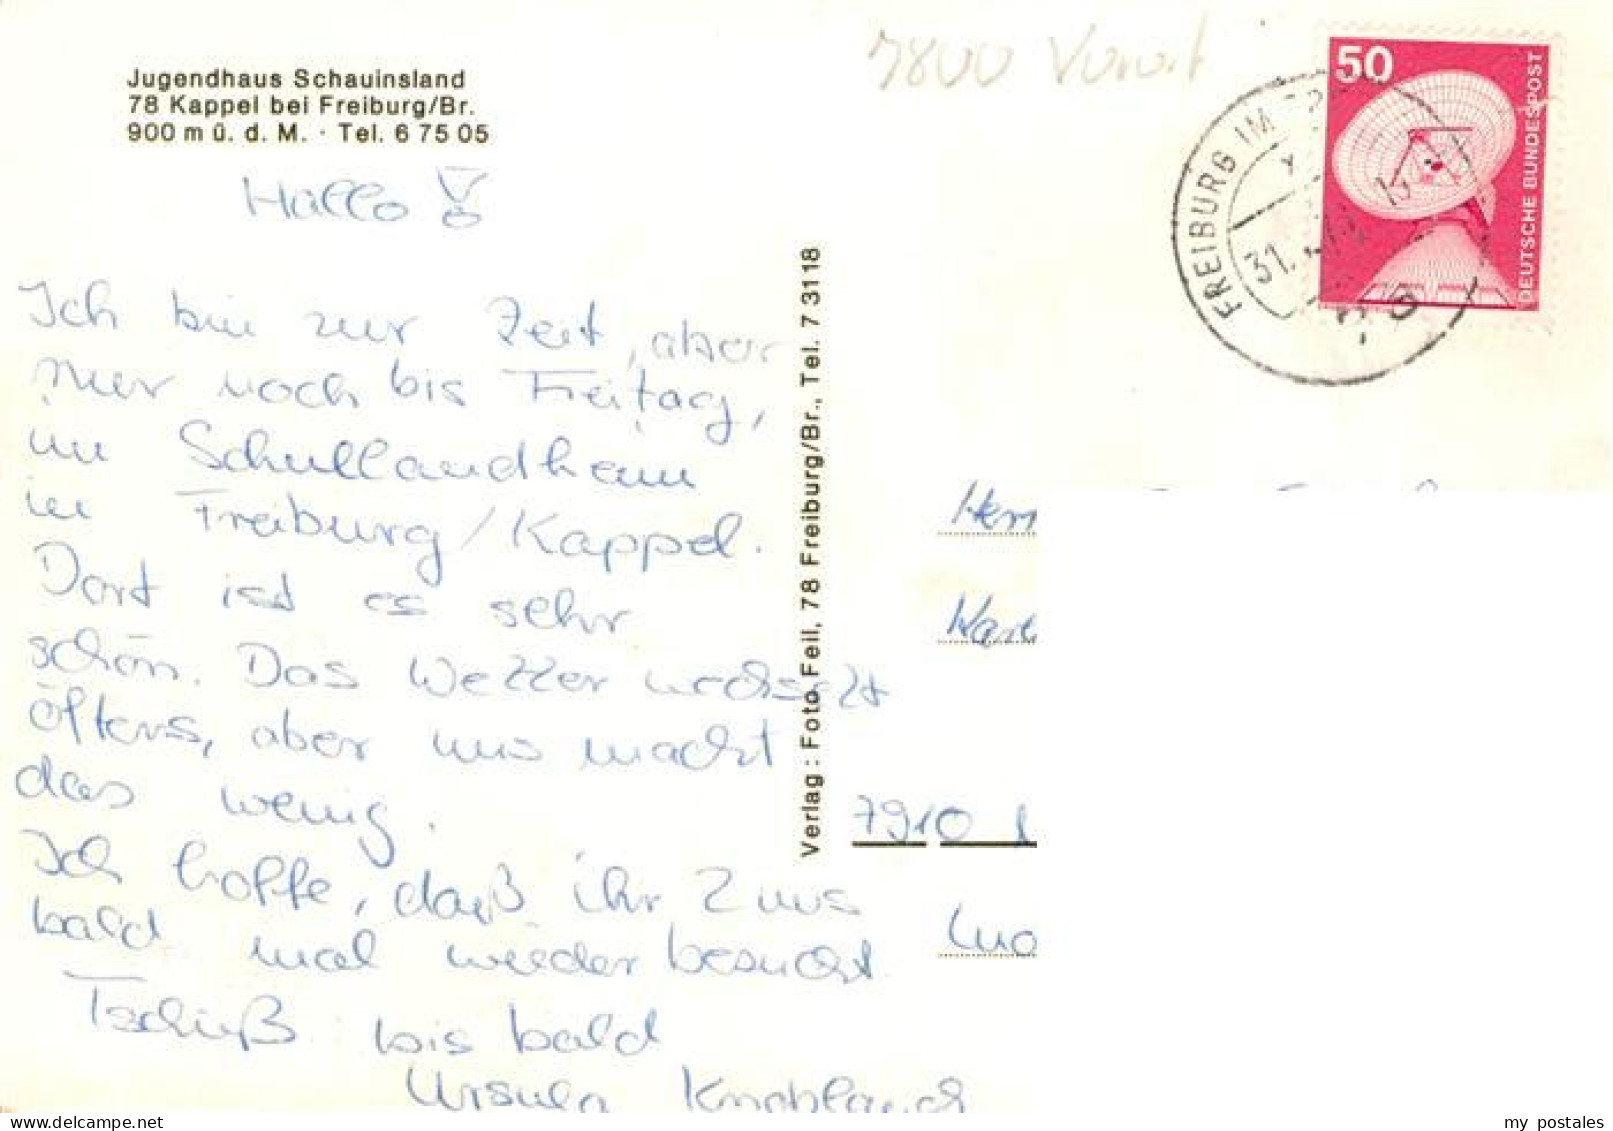 Jugendhaus Schauinsland
78 Kappel bei Freiburg/Br.
900 m ü. d. M. · Tel. 6 75 05
Hallo!
Ich bin zur Zeit, aber
nur noch bis Freitag,
im Schullandheim
in Freiburg/Kappel.
Dort ist es sehr
schön. Das Wetter wechselt
öfters, aber uns macht
das wenig.
Ich hoffe, daß ihr 2 uns
bald mal wieder besucht
Tschüß bis bald
Ursula
Verlag: Foto Feil, 78 Freiburg/Br., Tel. 7 31 18
7800
50
DEUTSCHE BUNDESPOST
FREIBURG IM
31.
78
Herr
7910
my postales